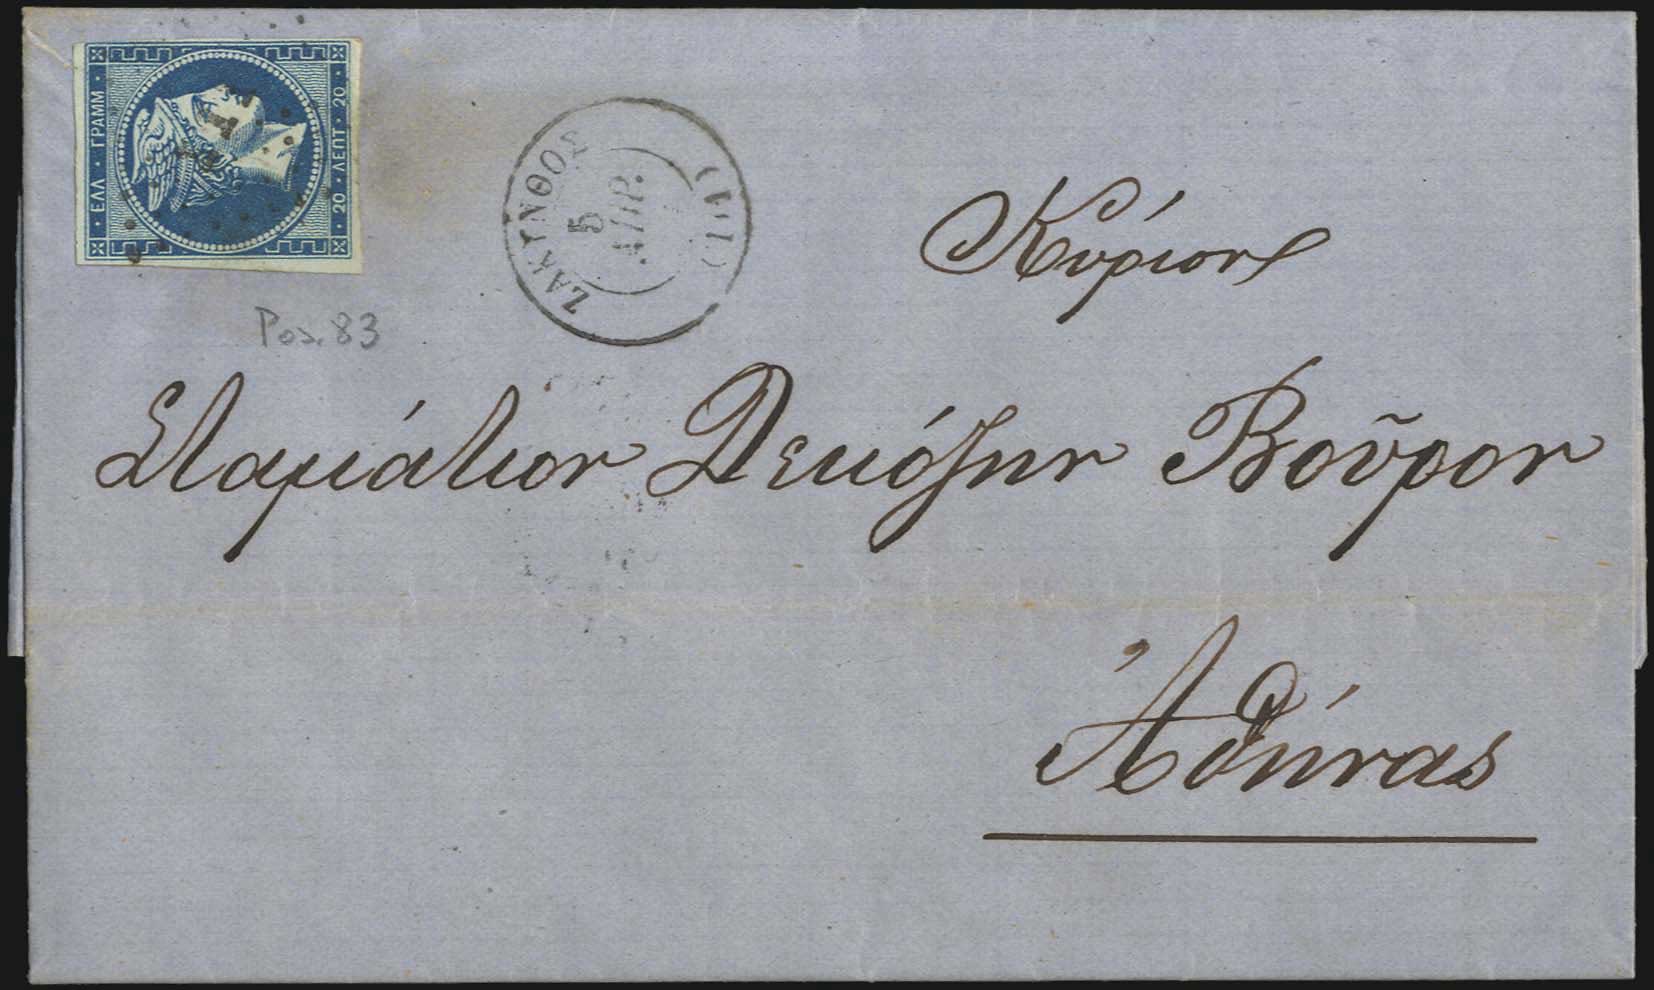 ΕΛΛ · ΓΡΑΜΜ ·
20 · ΛΕΠΤ · 20
ΖΑΚΥΝΘΟΣ
5
ΑΠΡ.
Pos. 83
Κύριον
Σταμάτιον Δεκόζην Βοῦρον
Ἀθήνας